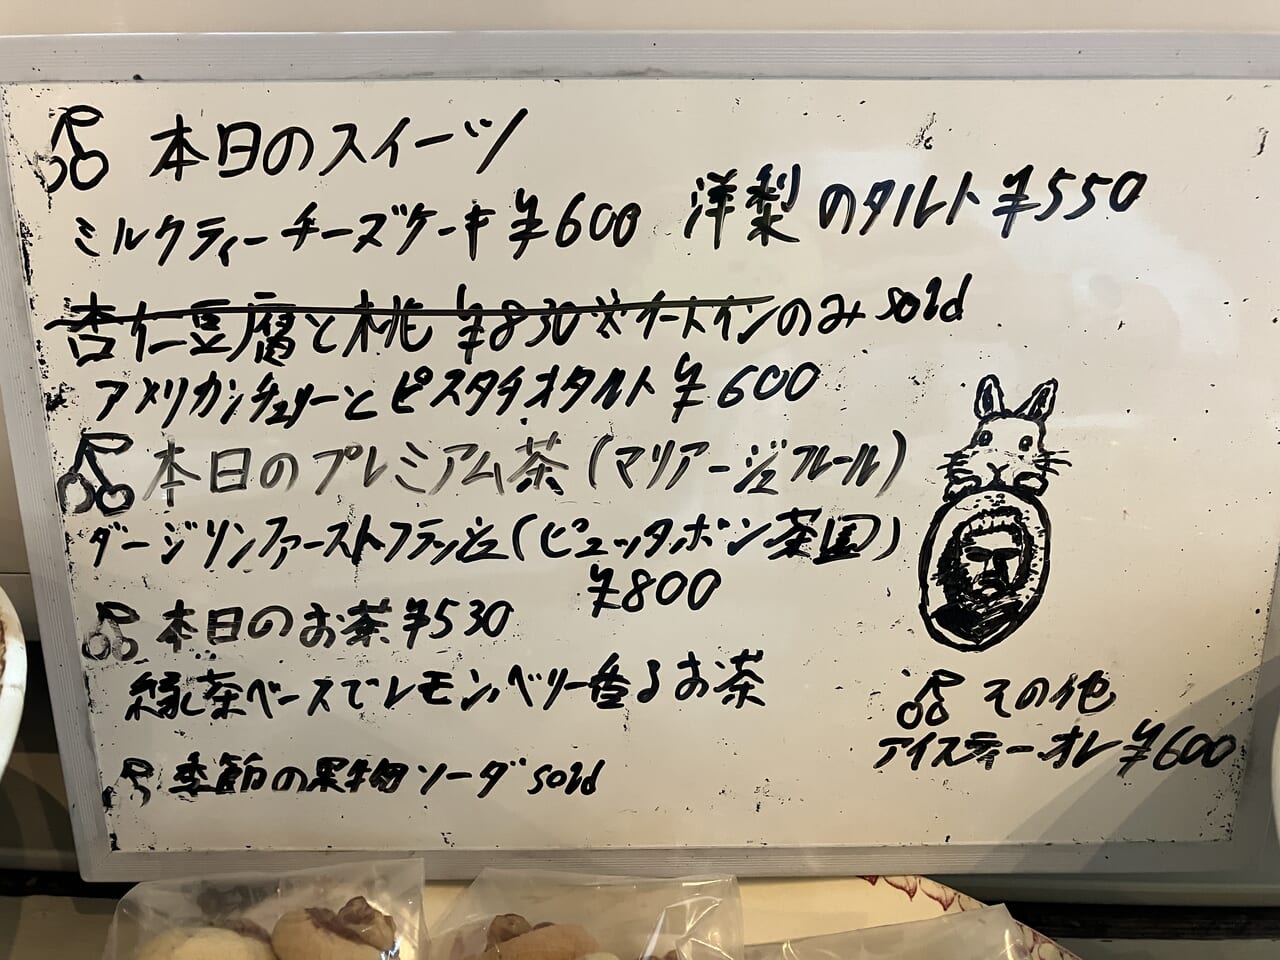 本日のスイーツ
ミルクティーチーズケーキ ¥600 洋梨のタルト ¥550
杏仁豆腐と桃 ¥830 ※イートインのみ sold
アメリカンチェリーとピスタチオタルト ¥600
本日のプレミアム茶(マリアージュフレール)
ダージリンファーストフラッシュ(ピュッタボン茶園)
¥800
本日のお茶 ¥530
緑茶ベースでレモン、ベリー香るお茶
季節の果物ソーダ sold
その他
アイスティーオレ ¥600